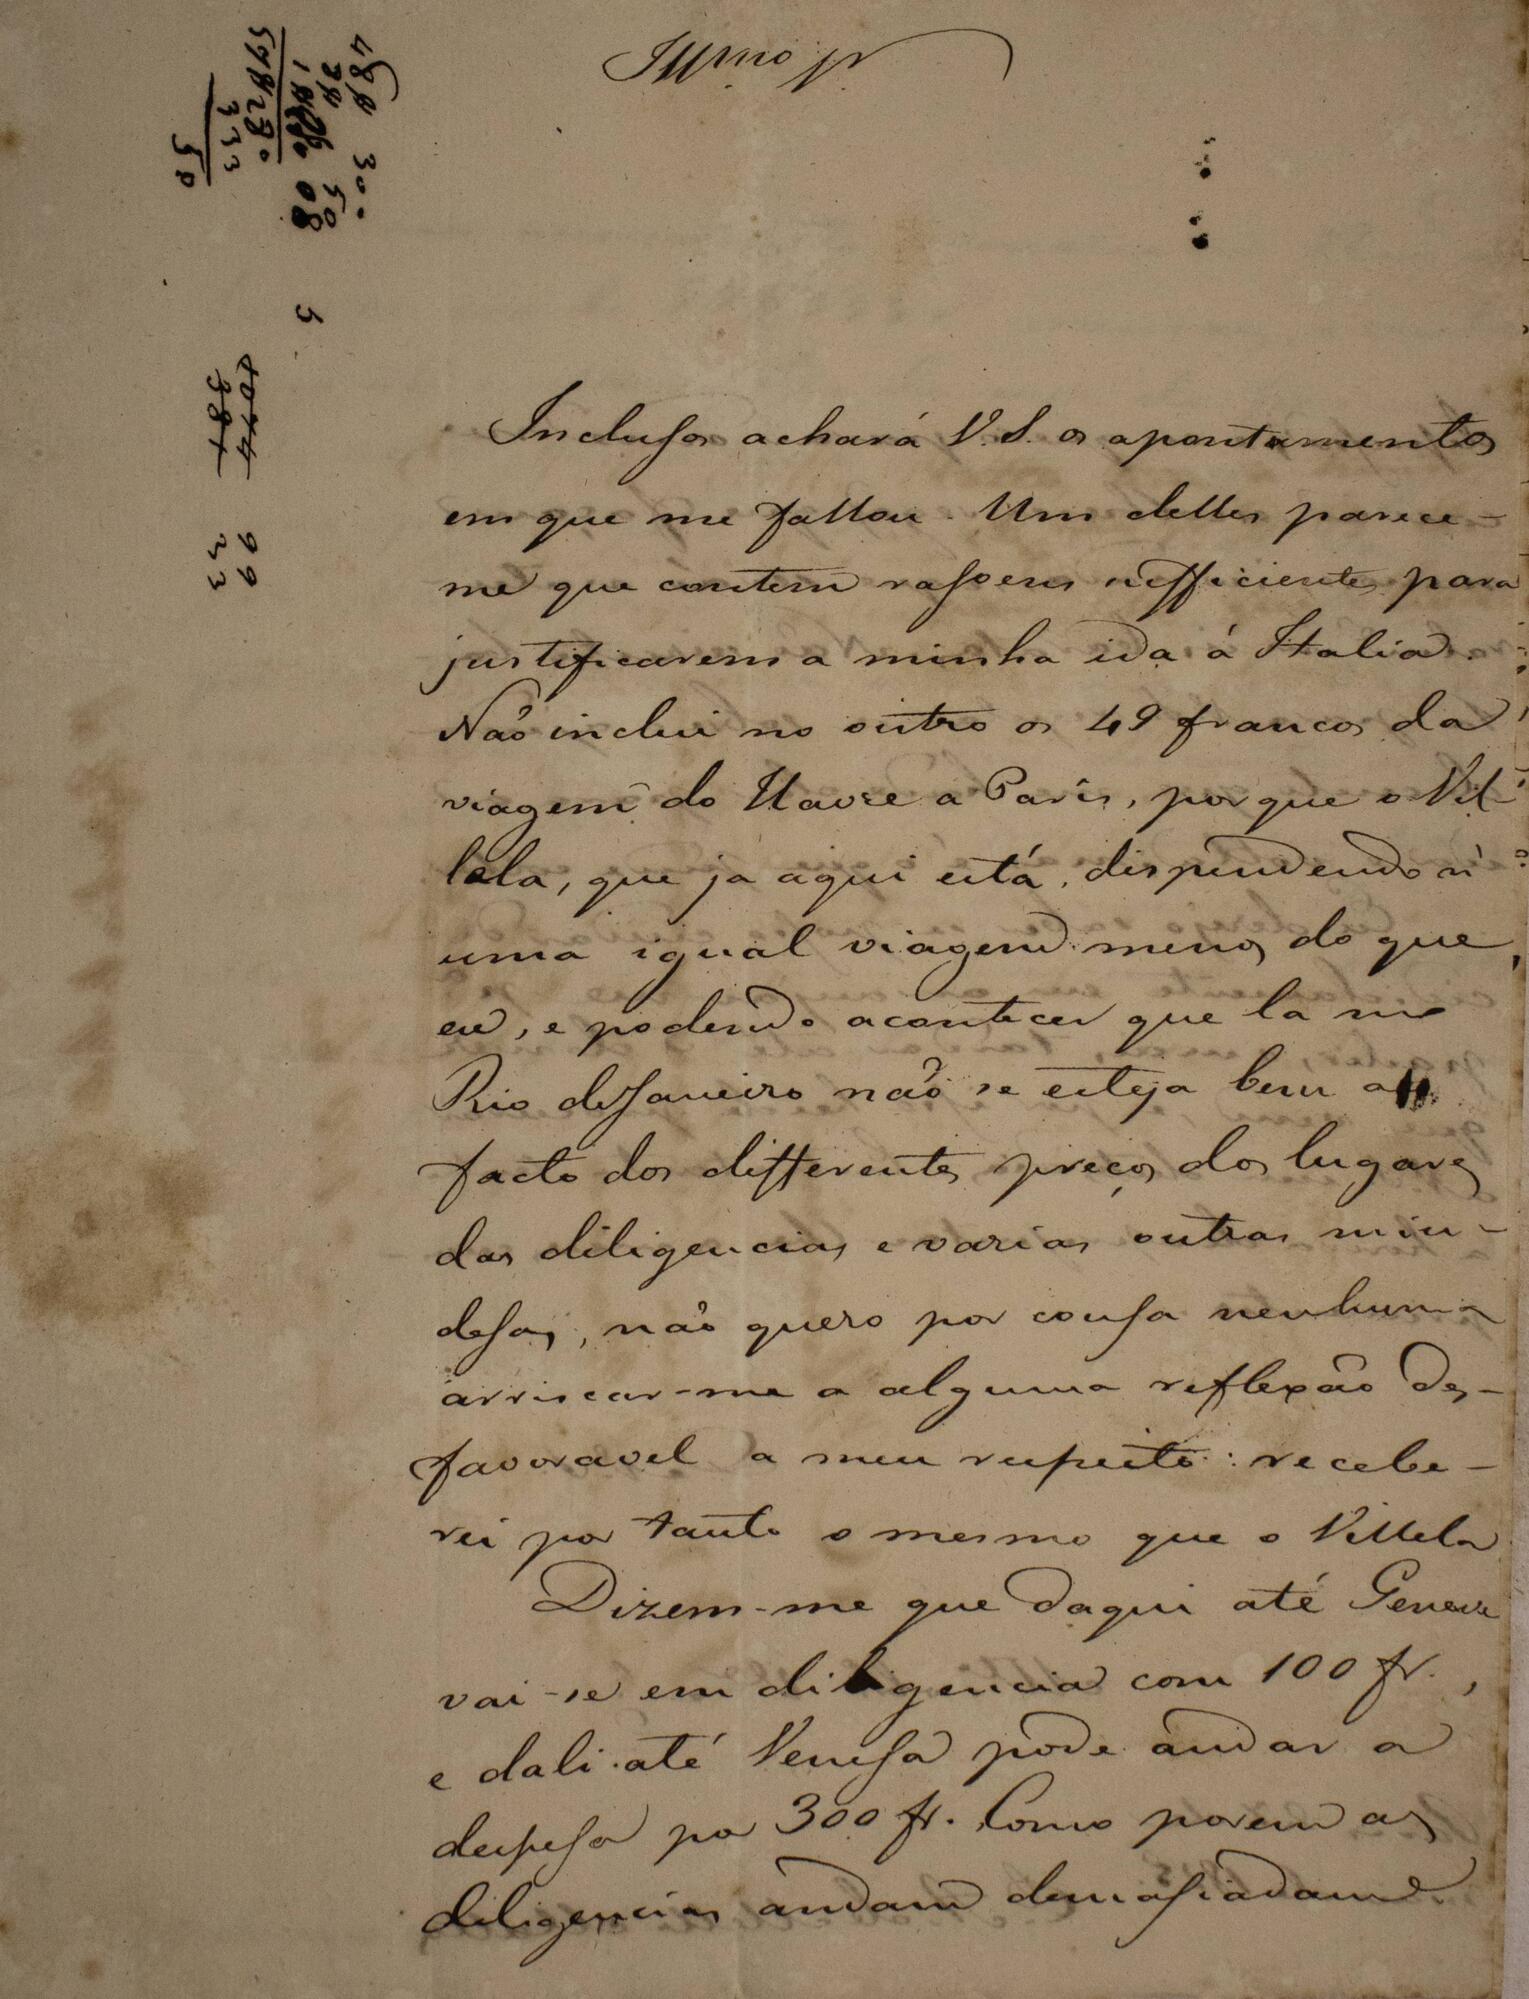 Illmo Sr
Inclusos achará V. S. os apontamentos
em que me fallou. Um delles parece-
me que contem rasoens sufficientes para
justificarem a minha ida á Italia.
Não inclui no outro os 49 francos da
viagem do Havre a Paris, porque o Vil-
lela, que ja aqui está, dispendendo n'
uma igual viagem menos do que
eu, e podendo acontecer que la no
Rio de Janeiro não se esteja bem ao
facto dos differentes preços dos lugares
das diligencias e varias outras miu-
desas, não quero por cousa nenhuma
arriscar-me a alguma reflexão des-
favoravel a meu respeito: recebe-
rei por tanto o mesmo que o Villela
Dizem-me que daqui até Geneve
vai-se em diligencia com 100 fr.,
e dali até Venesa pode andar a
despesa por 300 fr. Como porem as
diligencias andam demasiadame
5
99
33